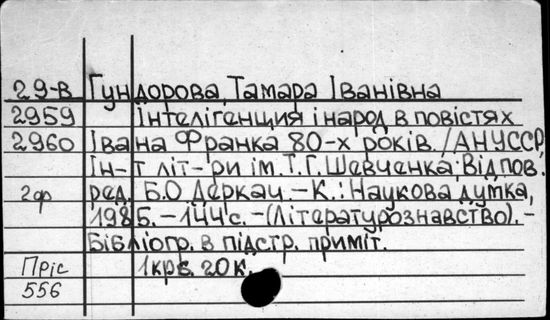 29-В Гундорова, Тамара Іванівна
2959 Інтелігенция і народ в повістях
2960 Івана Франка 80-х років /АНУССР,
Ін-т літ-ри ім. Т.Г.Шевченка; Відпов.
2ф ред. Б.О Деркач. -К.: Наукова думка,
1985. -144с. -(Літературознавство). -
Бібліогр. в підстр. приміт.
Пріс 1крб. 20к.
556